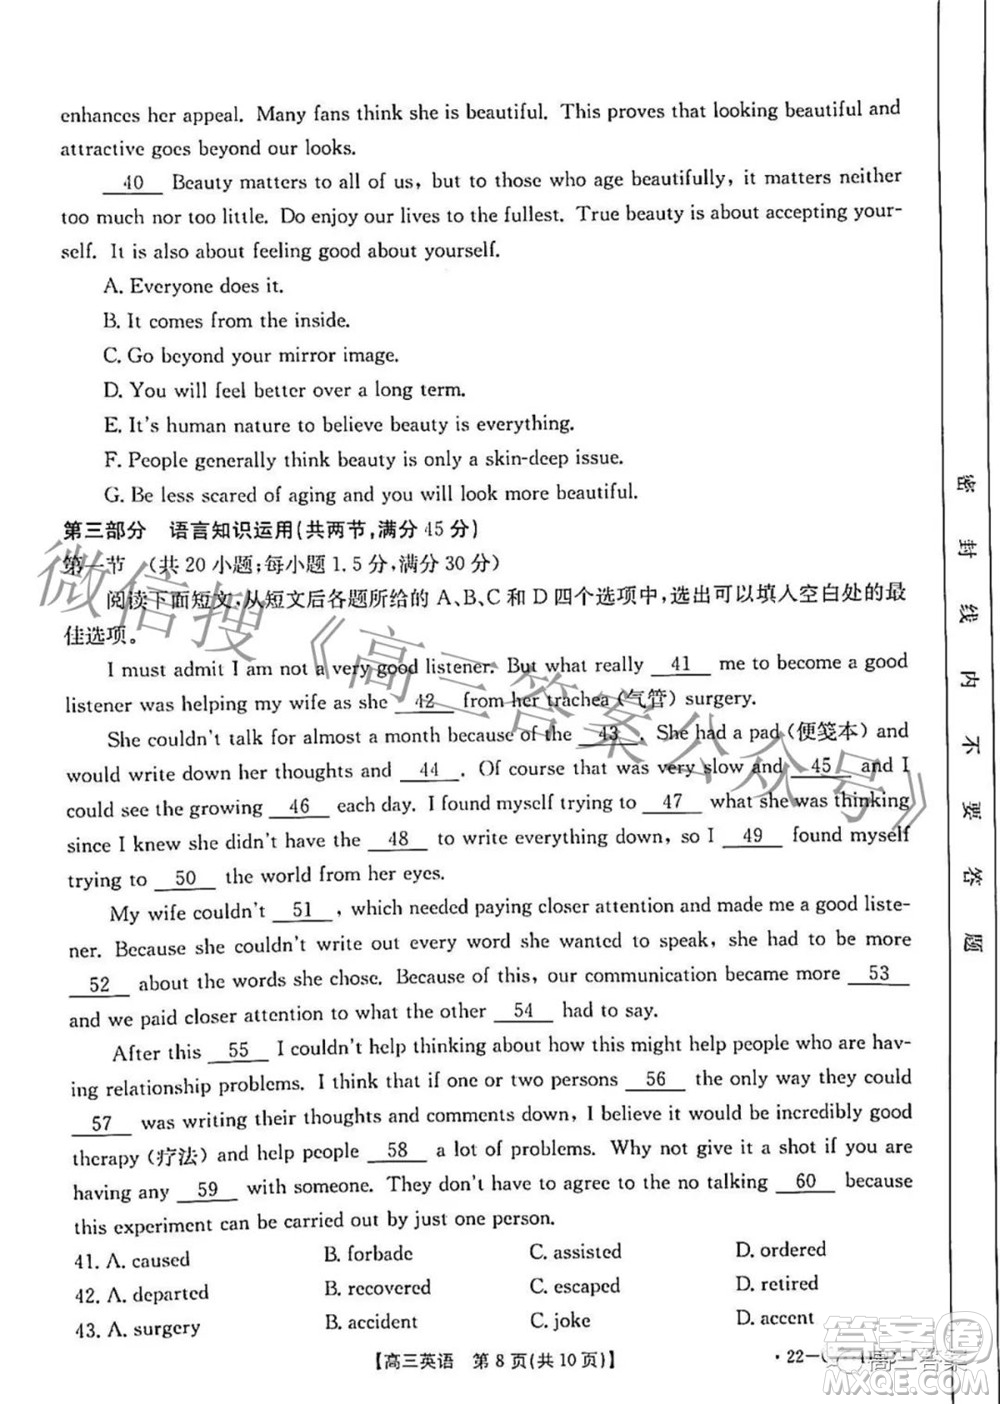 enhances her appeal. Many fans think she is beautiful. This proves that looking beautiful and
attractive goes beyond our looks.
40 Beauty matters to all of us, but to those who age beautifully, it matters neither
too much nor too little. Do enjoy our lives to the fullest. True beauty is about accepting your-
self. It is also about feeling good about yourself.
A. Everyone does it.
B. It comes from the inside.
C. Go beyond your mirror image.
D. You will feel better over a long term.
E. It's human nature to believe beauty is everything.
F. People generally think beauty is only a skin-deep issue.
G. Be less scared of aging and you will look more beautiful.
第三部分 语言知识运用(共两节,满分 45 分)
第一节 (共 20 小题;每小题 1.5 分,满分 30 分)
阅读下面短文,从短文后各题所给的 A、B、C 和 D 四个选项中,选出可以填入空白处的最
佳选项。
I must admit I am not a very good listener. But what really 41 me to become a good
listener was helping my wife as she 42 from her trachea (气管) surgery.
She couldn't talk for almost a month because of the 43 . She had a pad(便笺本) and
would write down her thoughts and 44 . Of course that was very slow and 45 and I
could see the growing 46 each day. I found myself trying to 47 what she was thinking
since I knew she didn't have the 48 to write everything down, so I 49 found myself
trying to 50 the world from her eyes.
My wife couldn't 51 , which needed paying closer attention and made me a good liste-
ner. Because she couldn't write out every word she wanted to speak, she had to be more
52 about the words she chose. Because of this, our communication became more 53
and we paid closer attention to what the other 54 had to say.
After this 55 I couldn't help thinking about how this might help people who are hav-
ing relationship problems. I think that if one or two persons 56 the only way they could
57 was writing their thoughts and comments down, I believe it would be incredibly good
therapy (疗法) and help people 58 a lot of problems. Why not give it a shot if you are
having any 59 with someone. They don't have to agree to the no talking 60 because
this experiment can be carried out by just one person.
41. A. caused B. forbade C. assisted D. ordered
42. A. departed B. recovered C. escaped D. retired
43. A. surgery B. accident C. joke D. accent
【高三英语 第 8 页(共 10 页)】
· 22-
密封线内不要答题
微信搜《高三答案公众号》
答案圈
高三答案